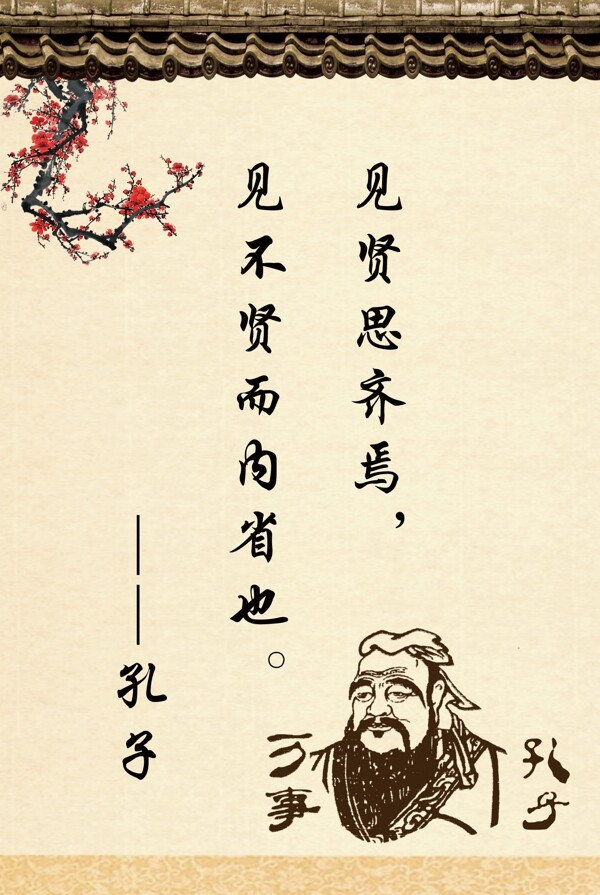 见贤思齐焉，
见不贤而内省也。
——孔子
孔子
万事